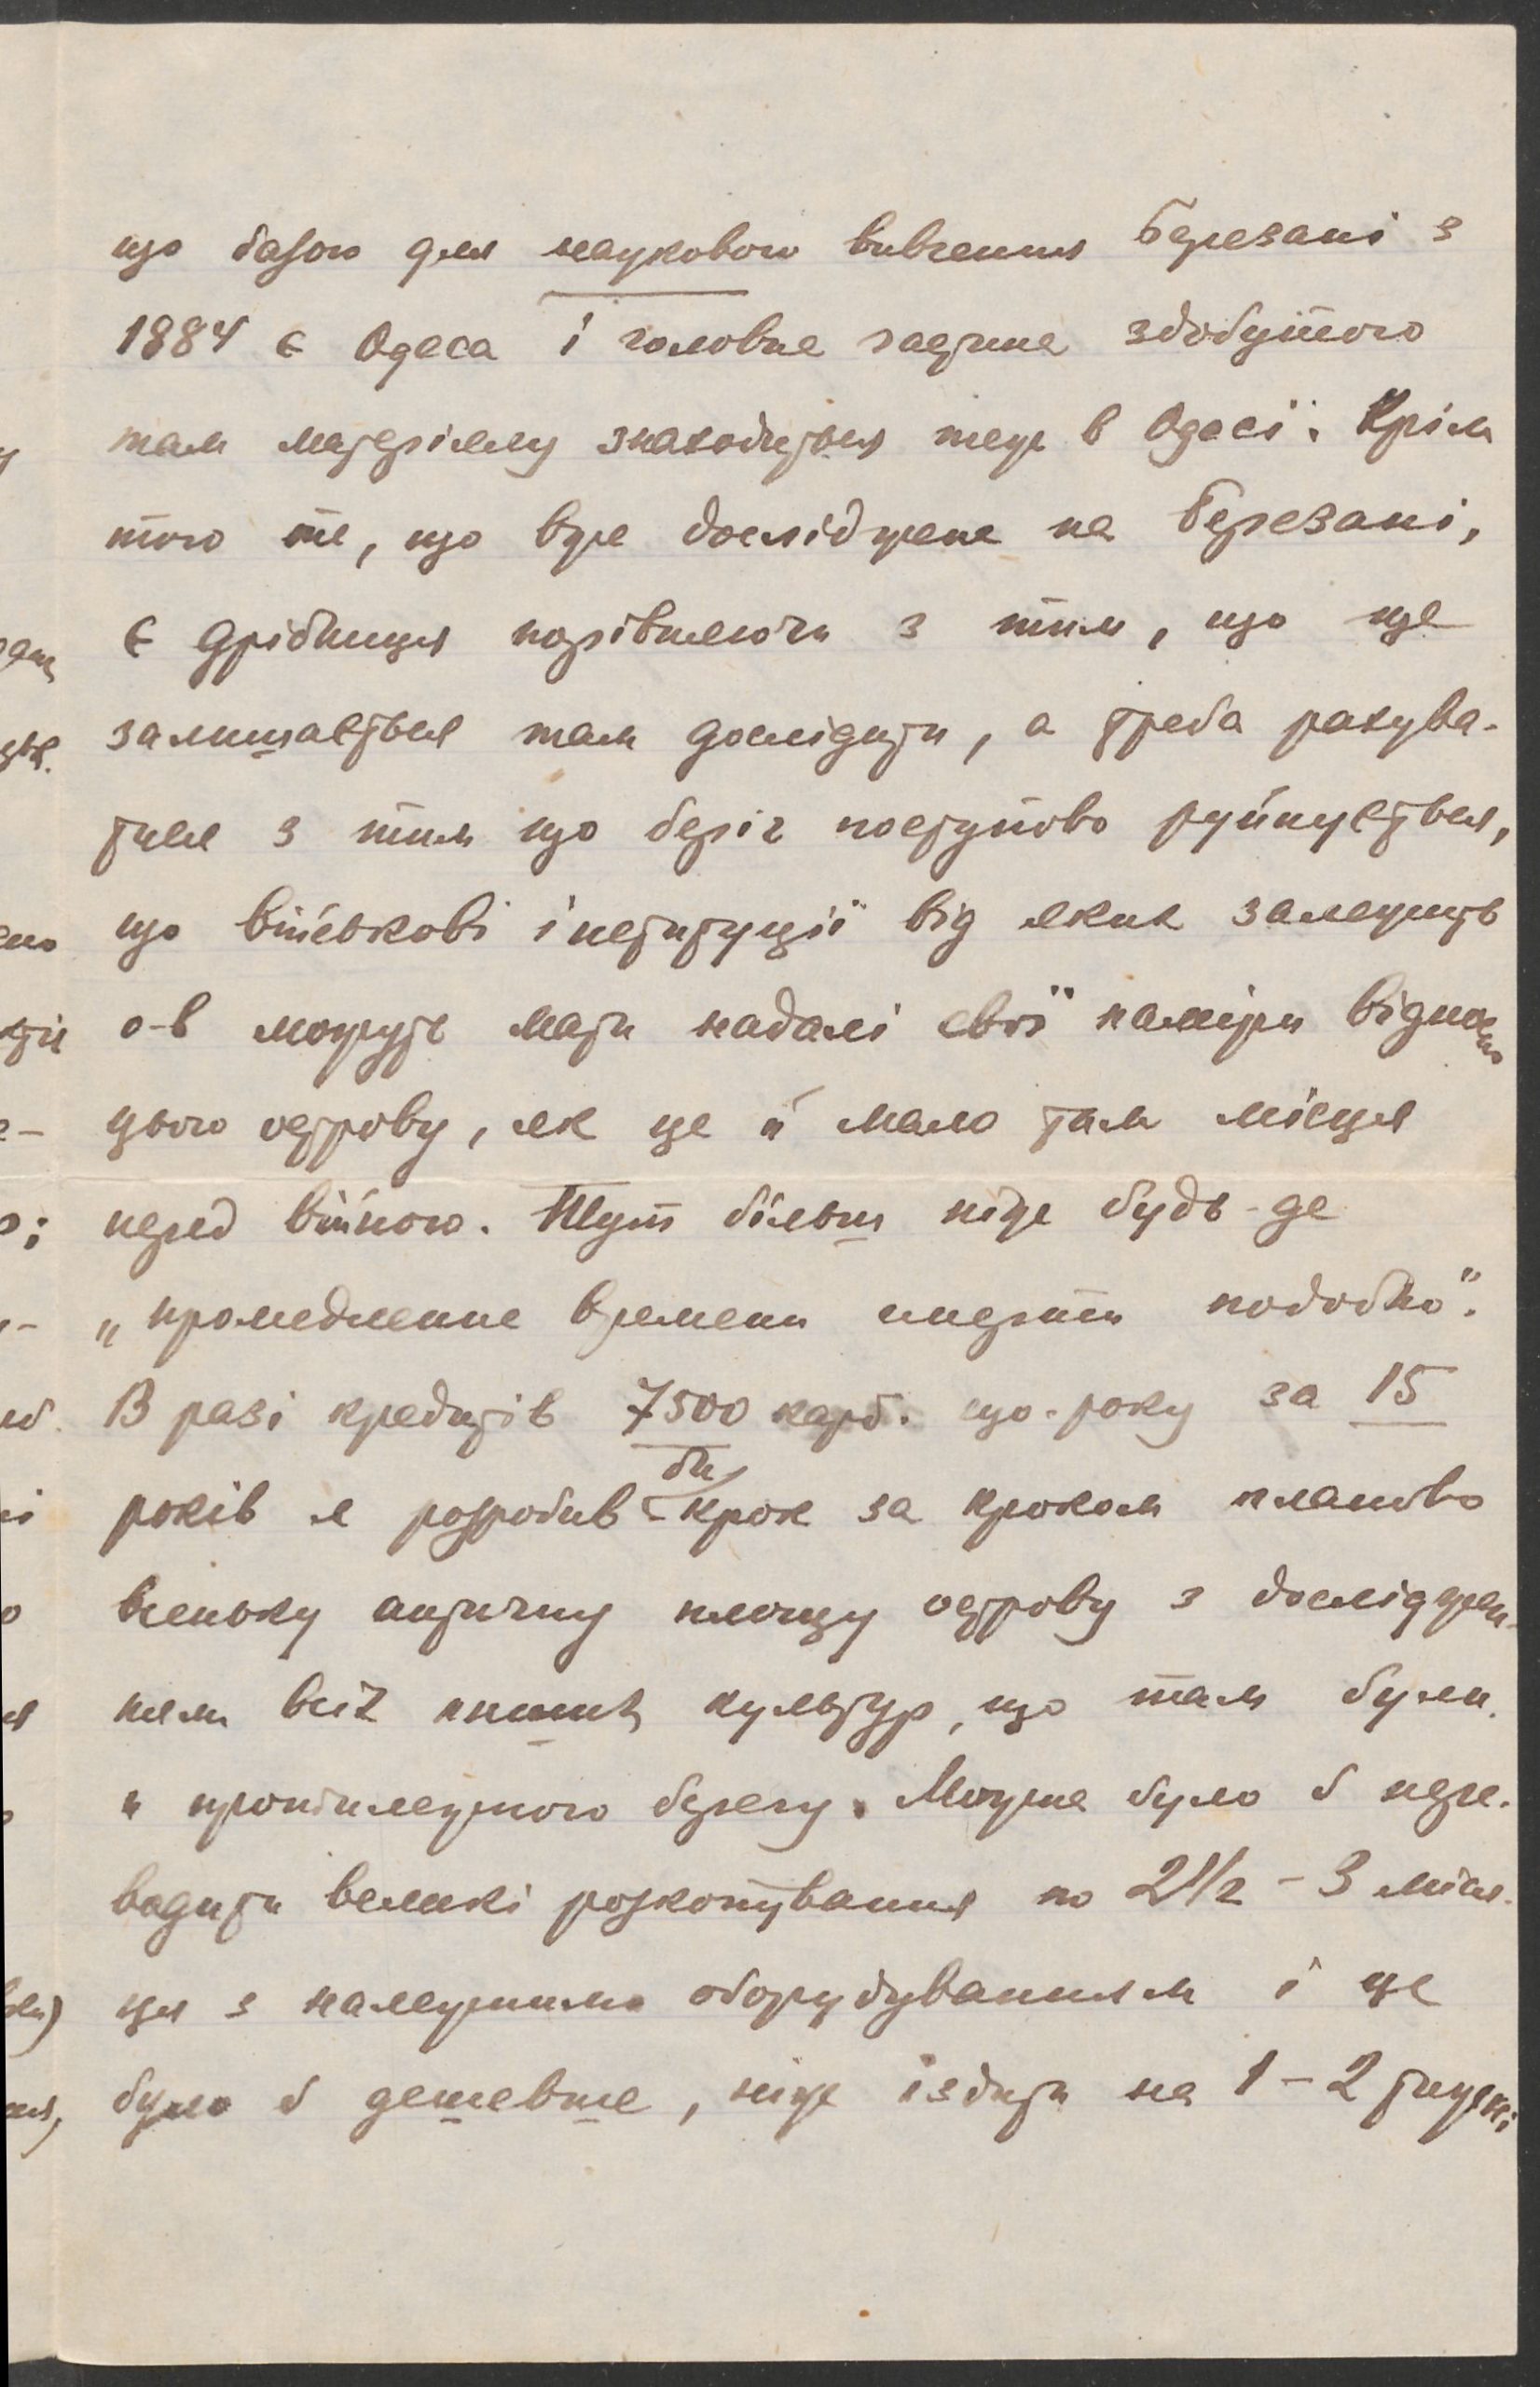 що базою для наукового вивчення Березані з
1884 є Одеса і головне частина здобутого
там матеріялу знаходиться теж в Одесі. Крім
того те, що вже досліджене на Березані,
є дрібниця порівнюючи з тим, що ще
залишається там дослідити, а треба рахува-
тися з тим що беріг поступово руйнується,
що військові інституції від яких залежить
о-в можуть мати надалі свої наміри відносно
цього острову, як це й мало там місця
перед війною. Тут більш ніж будь-де
„промедление времени смерти подобно".
В разі кредитів 7500 карб. що-року за 15
років я розробив би крок за кроком планово
всеньку античну площу острову з досліджен-
ням всіх инших культур, що там були
й протилежного берегу. Можна було б пере-
водити великі розкопування по 2 1/2 – 3 міся-
ця з належним оборудуванням і це
було б дешевше, ніж їздити на 1 – 2 тижні